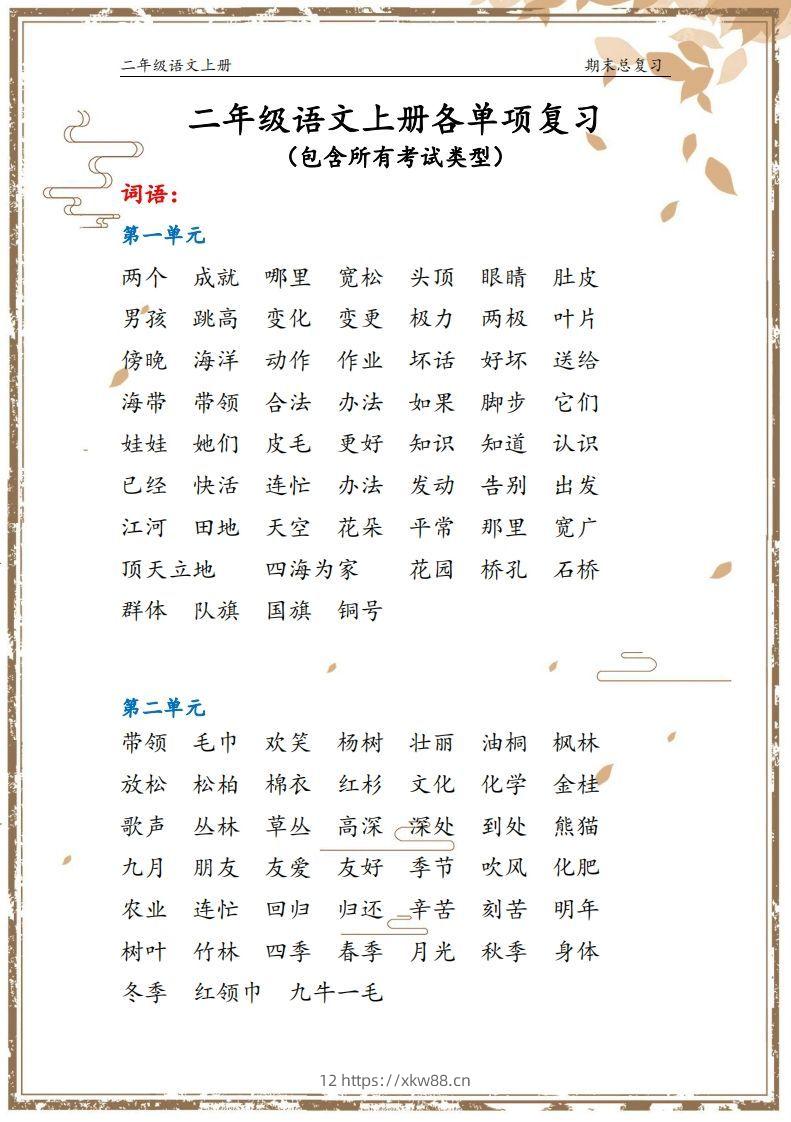 二年级语文上册 期末总复习
二年级语文上册各单项复习
（包含所有考试类型）
词语：
第一单元
两个 成就 哪里 宽松 头顶 眼睛 肚皮
男孩 跳高 变化 变更 极力 两极 叶片
傍晚 海洋 动作 作业 坏话 好坏 送给
海带 带领 合法 办法 如果 脚步 它们
娃娃 她们 皮毛 更好 知识 知道 认识
已经 快活 连忙 办法 发动 告别 出发
江河 田地 天空 花朵 平常 那里 宽广
顶天立地 四海为家 花园 桥孔 石桥
群体 队旗 国旗 铜号
第二单元
带领 毛巾 欢笑 杨树 壮丽 油桐 枫林
放松 松柏 棉衣 红杉 文化 化学 金桂
歌声 丛林 草丛 高深 深处 到处 熊猫
九月 朋友 友爱 友好 季节 吹风 化肥
农业 连忙 回归 归还 辛苦 刻苦 明年
树叶 竹林 四季 春季 月光 秋季 身体
冬季 红领巾 九牛一毛
12 https://xkw88.cn